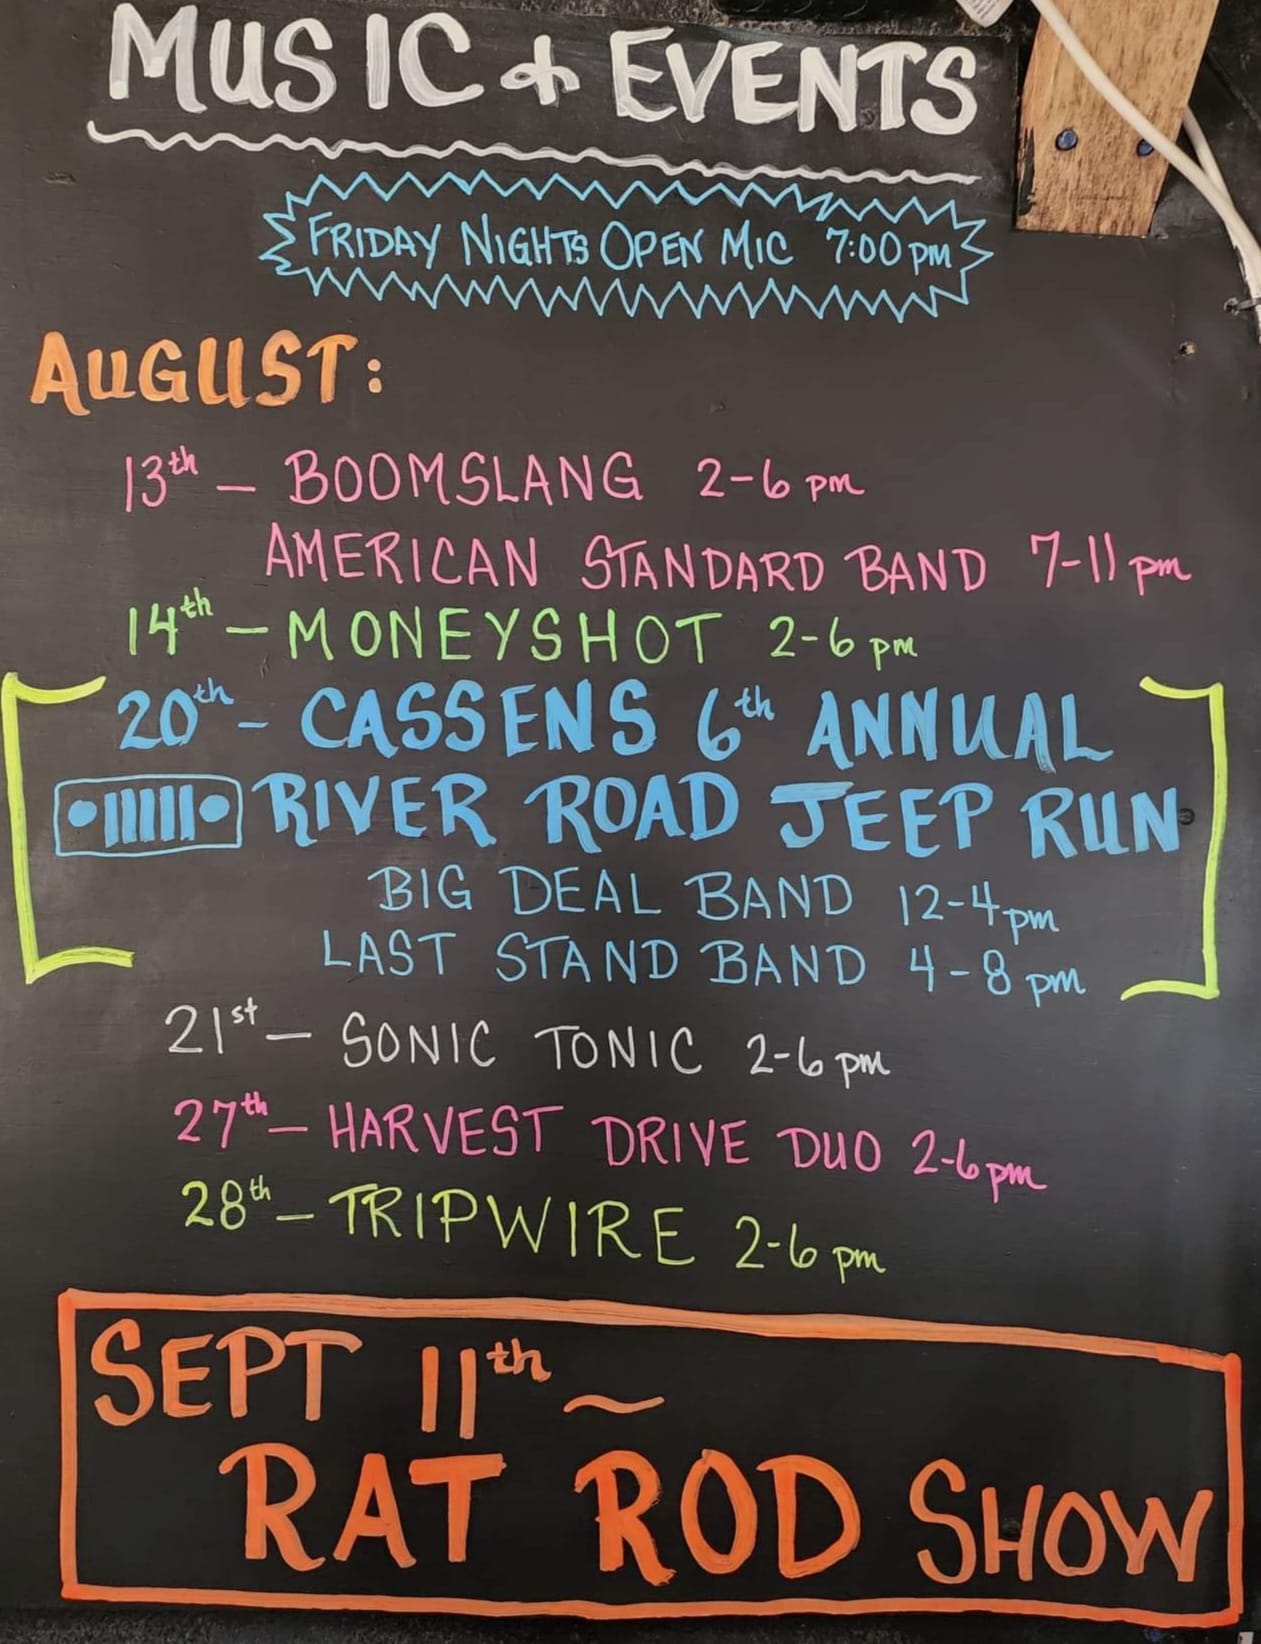 MUSIC & EVENTS
FRIDAY NIGHTS OPEN MIC 7:00 PM
AUGUST:
13th - BOOMSLANG 2-6 pm
AMERICAN STANDARD BAND 7-11 pm
14th - MONEYSHOT 2-6 pm
20th - CASSENS 6th ANNUAL
RIVER ROAD JEEP RUN
BIG DEAL BAND 12-4 pm
LAST STAND BAND 4-8 pm
21st - SONIC TONIC 2-6 pm
27th - HARVEST DRIVE DUO 2-6 pm
28th - TRIPWIRE 2-6 pm
SEPT 11th ~
RAT ROD SHOW